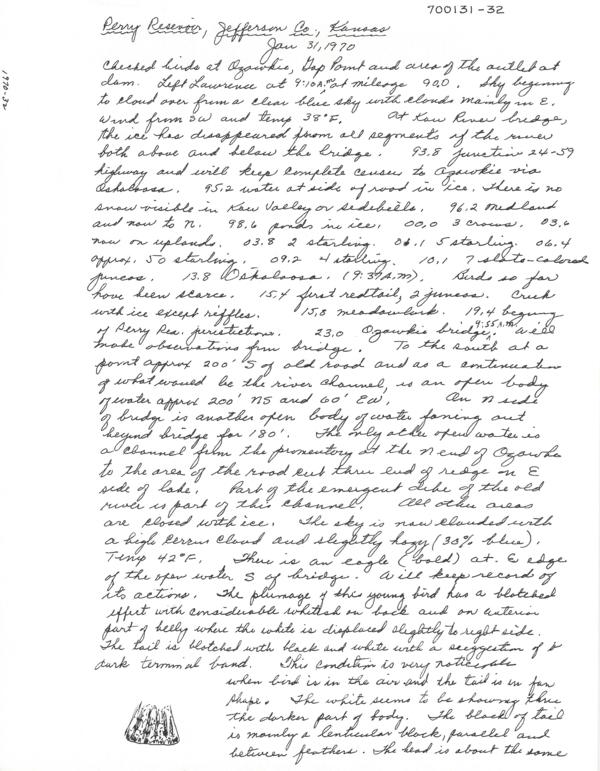 700131-32
Perry Resevoir, Jefferson Co., Kansas
Jan 31, 1970
1970-32
Checked birds at Ozawkie, Gap Point and area of the outlet at
dam. Left Lawrence at 9:10 A.M. at mileage 90.0. Sky beginning
to cloud over from a clear blue sky with clouds mainly in E.
Wind from SW and temp 38°F. At Kaw River bridge,
the ice has disappeared from all segments of the river
both above and below the bridge. 93.8 Junction 24-59
highway and will keep complete census to Ozawkie via
Oskaloosa. 95.2 water at side of road in ice. There is no
snow visible in Kaw Valley or sidehills. 96.2 Midland
and now to N. 98.6 ponds in ice. 00.0 3 crows. 03.6
now on uplands. 03.8 2 starling. 06.1 5 starling. 06.4
approx. 50 starling. 09.2 4 starling. 10.1 7 slate-colored
juncos. 13.8 Oskaloosa. (9:37 A.M). Birds so far
have been scarce. 15.4 first redtail, 2 juncos. Creek
with ice except riffles. 15.8 meadowlark. 19.4 begining
of Perry Res. juristiction. 23.0 Ozawkie bridge, 9:55 A.M. Will
make observations from bridge. To the south at a
point approx 200' S of old road and as a continuation
of what would be the river channel, is an open body
of water approx 200' NS and 60' EW. On N side
of bridge is another open body of water faning out
beyond bridge for 180'. The only other open water is
a channel from the promentory at the N end of Ozawkie
to the area of the road cut thru end of redge on E
side of lake. Part of the emergent dike of the old
river is part of this channel. All other areas
are closed with ice. The sky is now clouded with
a high cirrus cloud and slightly hazy (30% blue).
Temp 42°F. There is an eagle (bald) at E edge
of the open water S of bridge. Will keep record of
its actions. The plumage of this young bird has a blotched
effect with considerable whitish on back and on anterior
part of belly where the white is displaced slightly to right side.
The tail is blotched with black and white with a suggestion of a
dark terminal band. This condition is very noticeable
when bird is in the air and the tail is in fan
shape. The white seems to be showing thru
the darker part of body. The black of tail
is mainly a lenticular block, parallel and
between feathers. The head is about the same